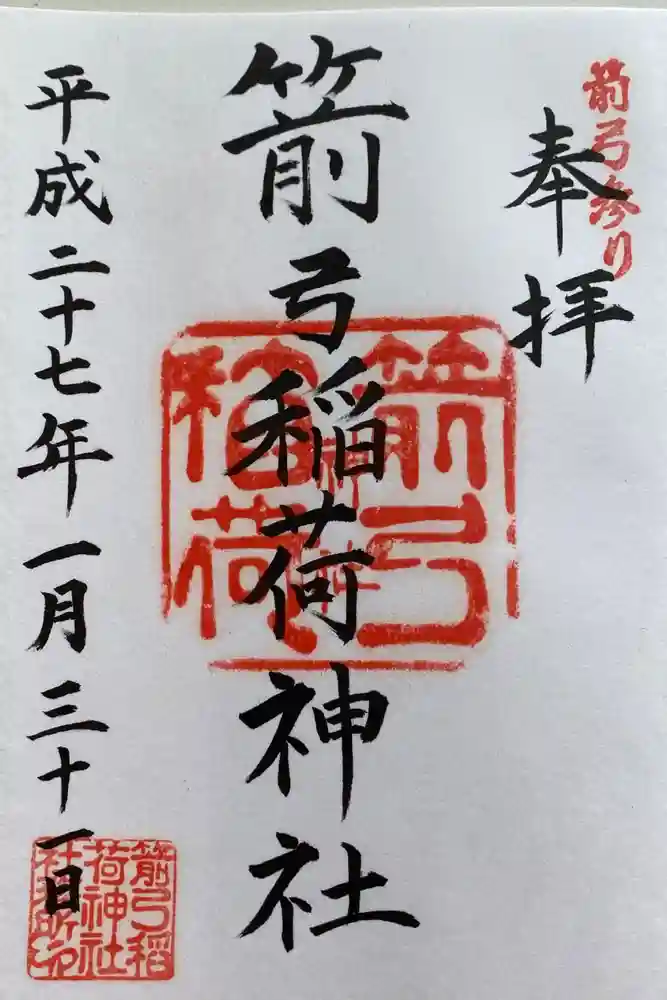 箭弓参り
奉拝
箭弓稲荷神社
箭弓稲荷
神社
平成二十七年一月三十一日
箭弓稲
荷神社
社務所印